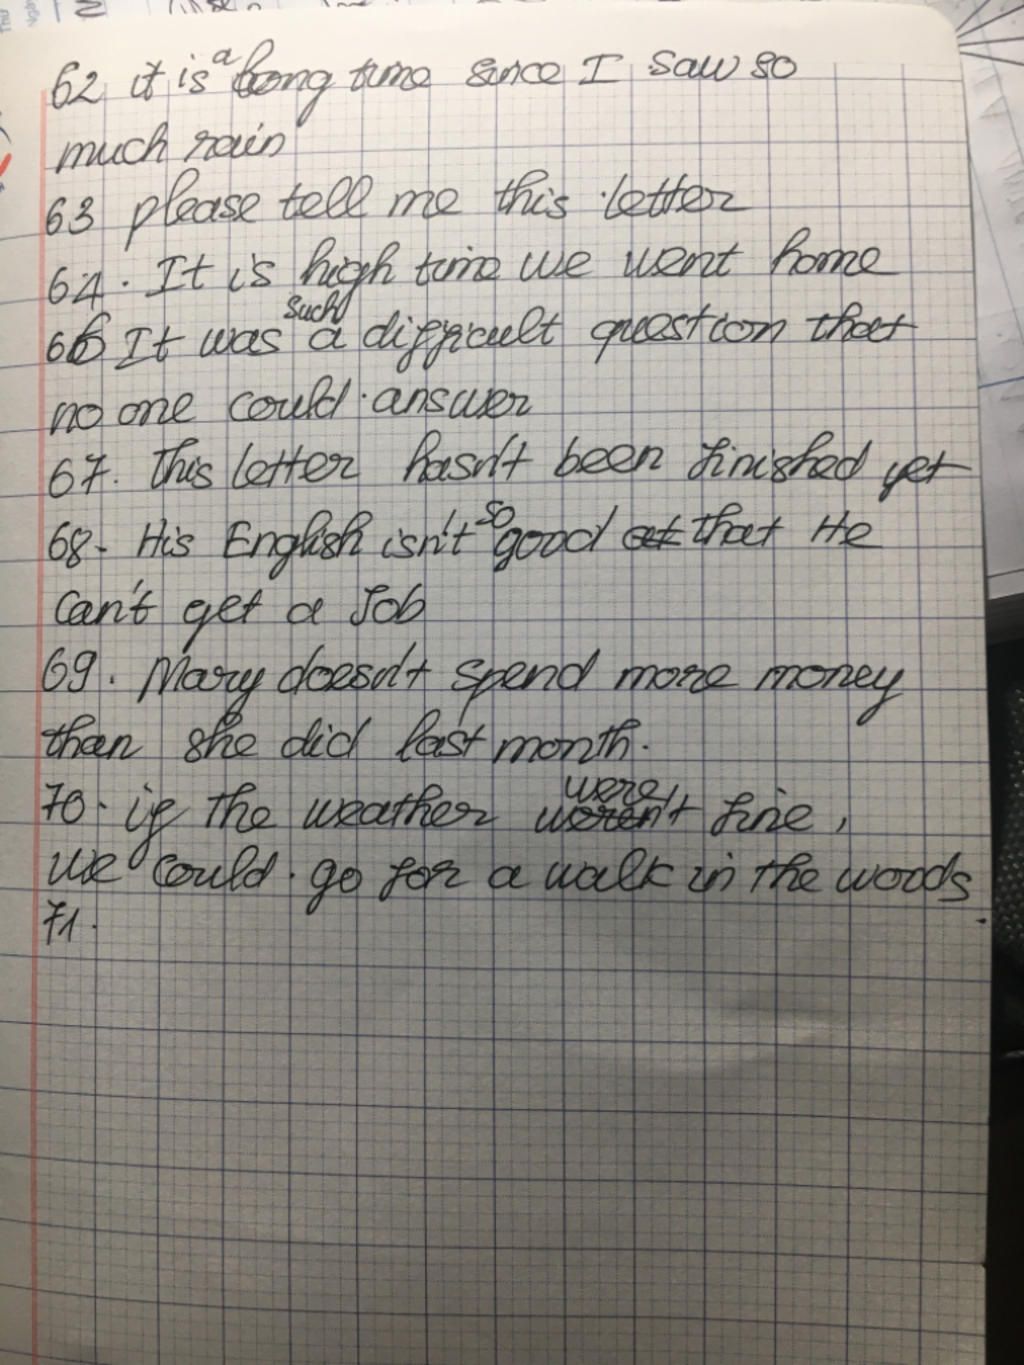 62 it is a long time since I saw so
much rain
63 please tell me this letter
64. It is high time we went home
66 It was such a difficult question that
no one could answer
67. This letter hasn't been finished yet
68- His English isn't so good at that He
can't get a Job
69. Mary doesn't spend more money
than she did last month.
70. if the weather weren't were fine,
we could go for a walk in the woods.
71.